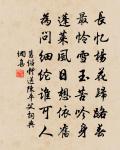 長憶楊花歸路春
最憐雪玉苦吟身
蓬萊風日想依舊
為問細論誰可人
葛紹體送陳平父